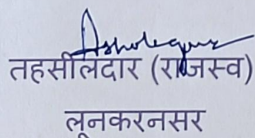 तहसीलदार (राजस्व)
लूनकरनसर